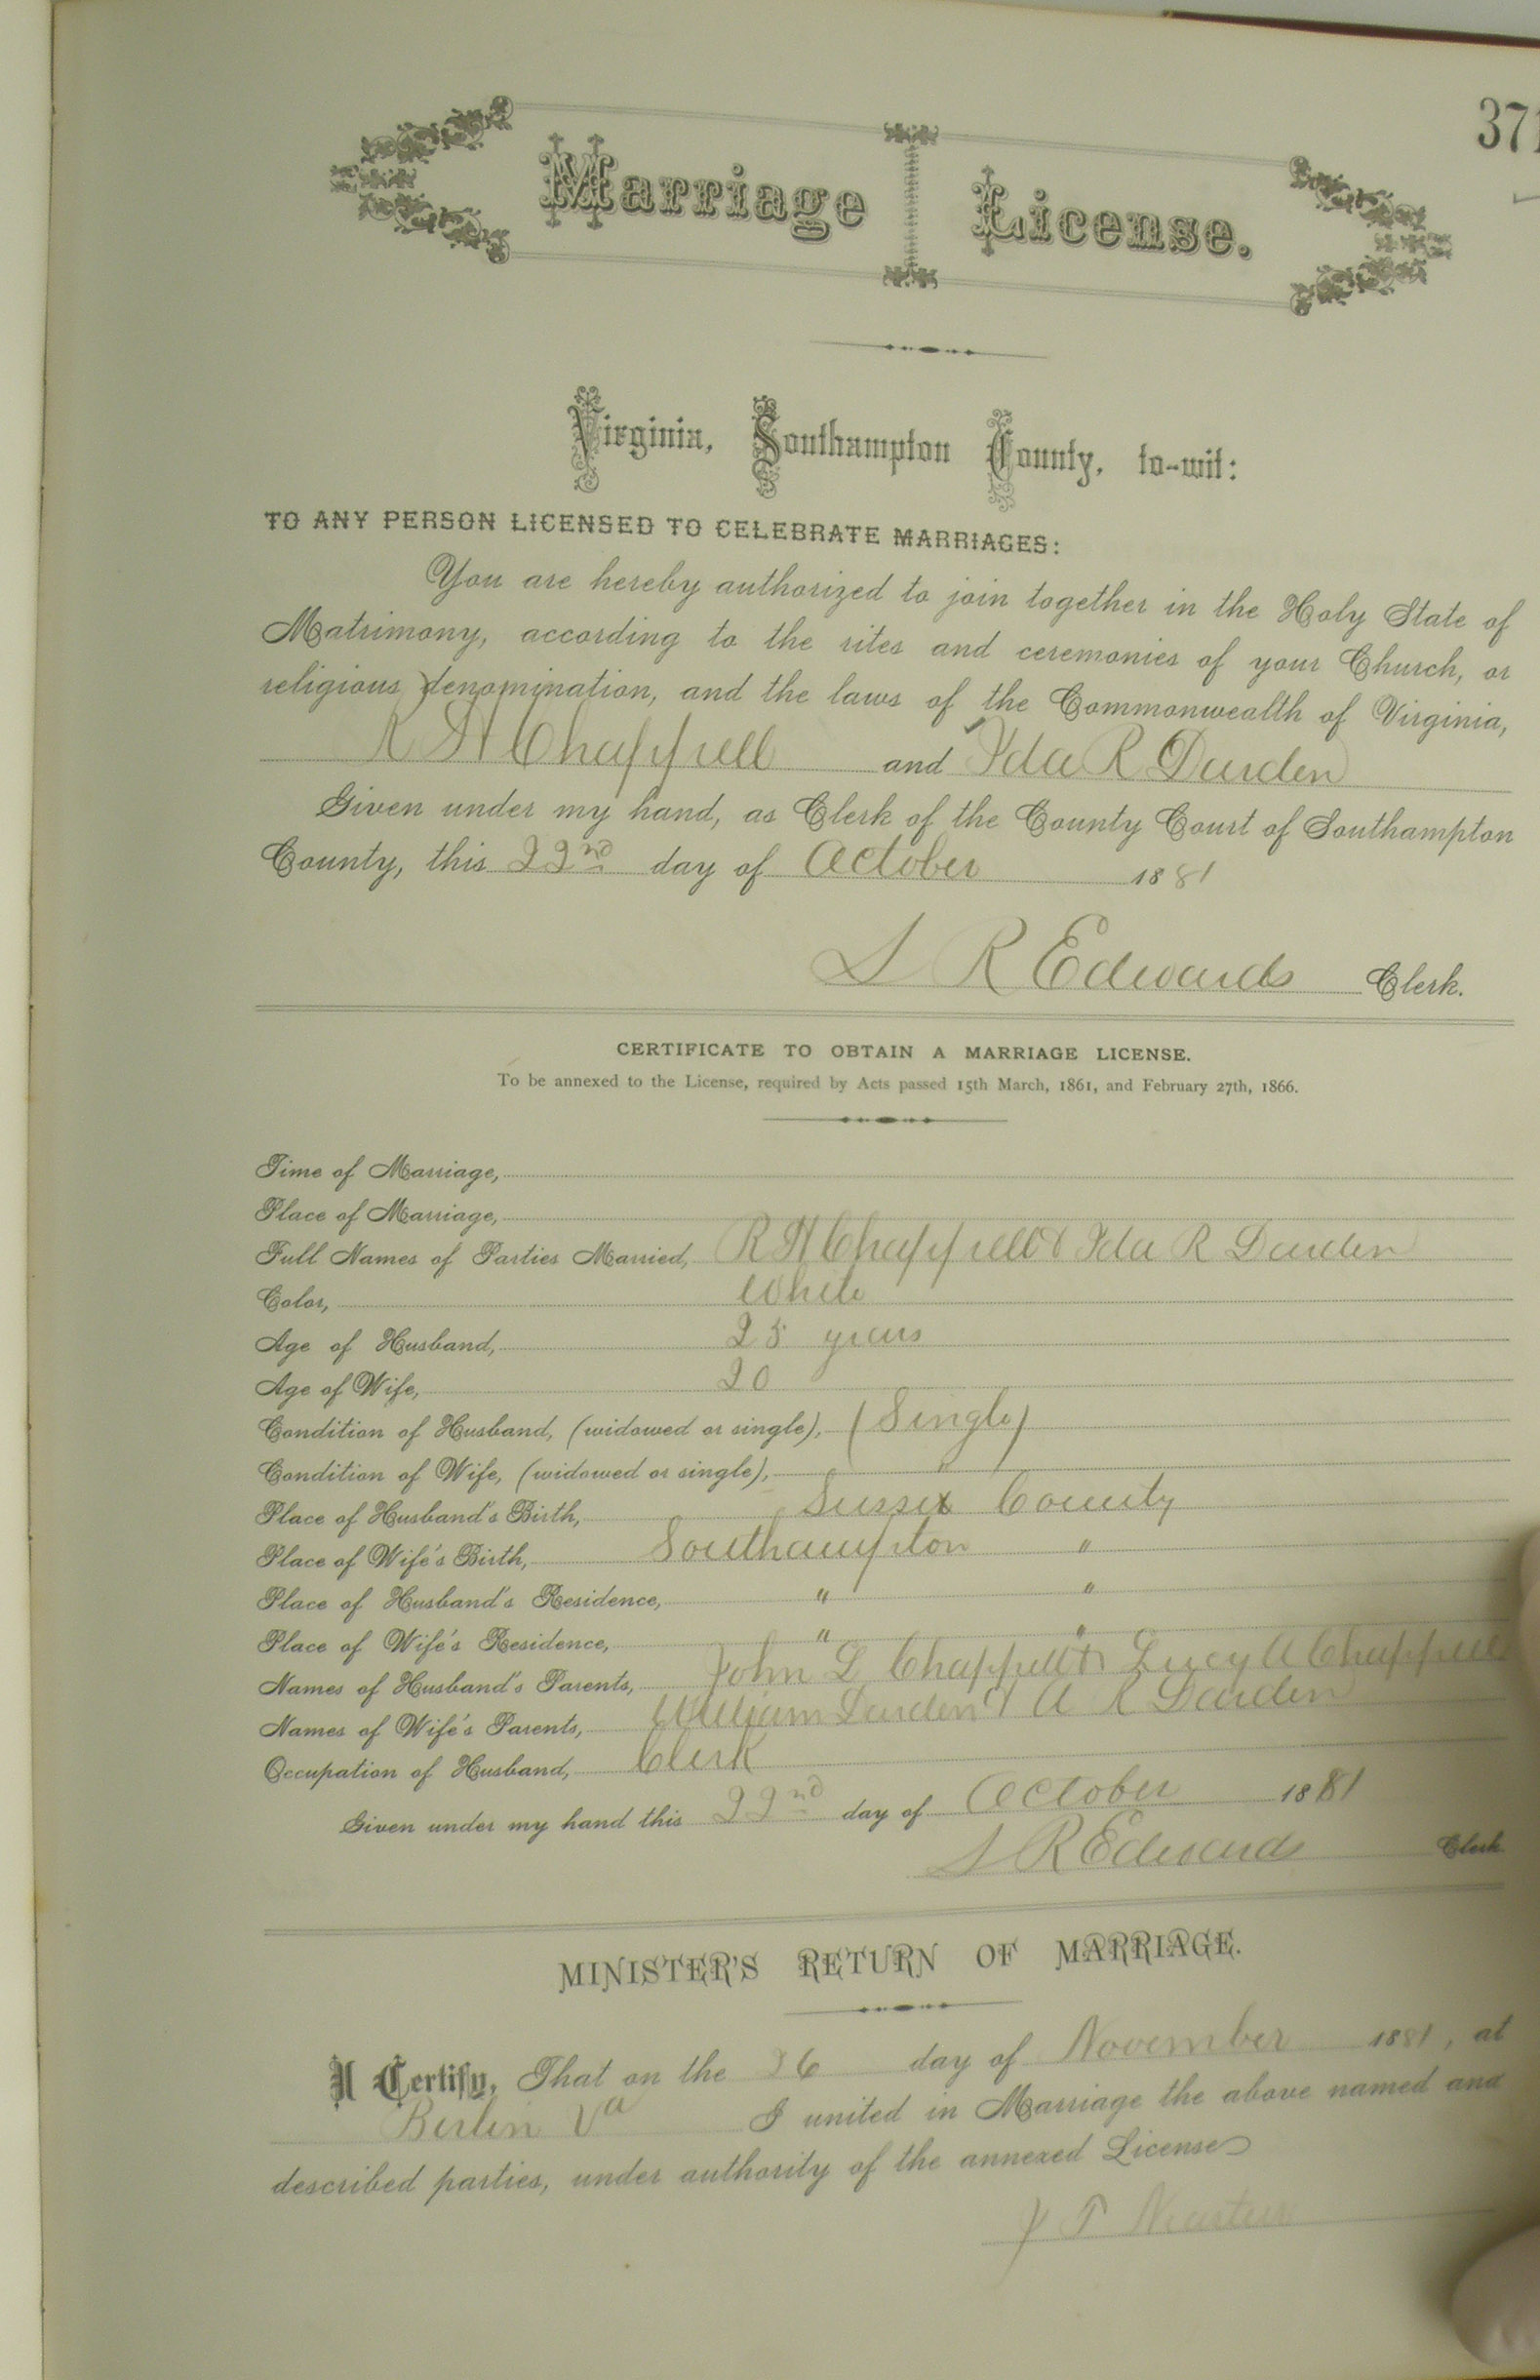 371
Marriage License.
Virginia, Southampton County, to-wit:
TO ANY PERSON LICENSED TO CELEBRATE MARRIAGES:
You are hereby authorized to join together in the Holy State of
Matrimony, according to the rites and ceremonies of your Church, or
religious denomination, and the laws of the Commonwealth of Virginia,
R H Chappell and Ida R Darden
Given under my hand, as Clerk of the County Court of Southampton
County, this 22nd day of October 1881
L R Edwards Clerk.
CERTIFICATE TO OBTAIN A MARRIAGE LICENSE.
To be annexed to the License, required by Acts passed 15th March, 1861, and February 27th, 1866.
Time of Marriage,
Place of Marriage,
Full Names of Parties Married, R H Chappell & Ida R Darden
Color, White
Age of Husband, 25 years
Age of Wife, 20
Condition of Husband, (widowed or single), (Single)
Condition of Wife, (widowed or single), "
Place of Husband's Birth, Sussex County
Place of Wife's Birth, Southampton "
Place of Husband's Residence, " "
Place of Wife's Residence, " "
Names of Husband's Parents, John L Chappell & Lucy A Chappell
Names of Wife's Parents, William Darden & A R Darden
Occupation of Husband, Clerk
Given under my hand this 22nd day of October 1881
L R Edwards Clerk
MINISTER'S RETURN OF MARRIAGE.
I Certify, That on the day of November 1881, at
Berlin Va I united in Marriage the above named and
described parties, under authority of the annexed License
J T